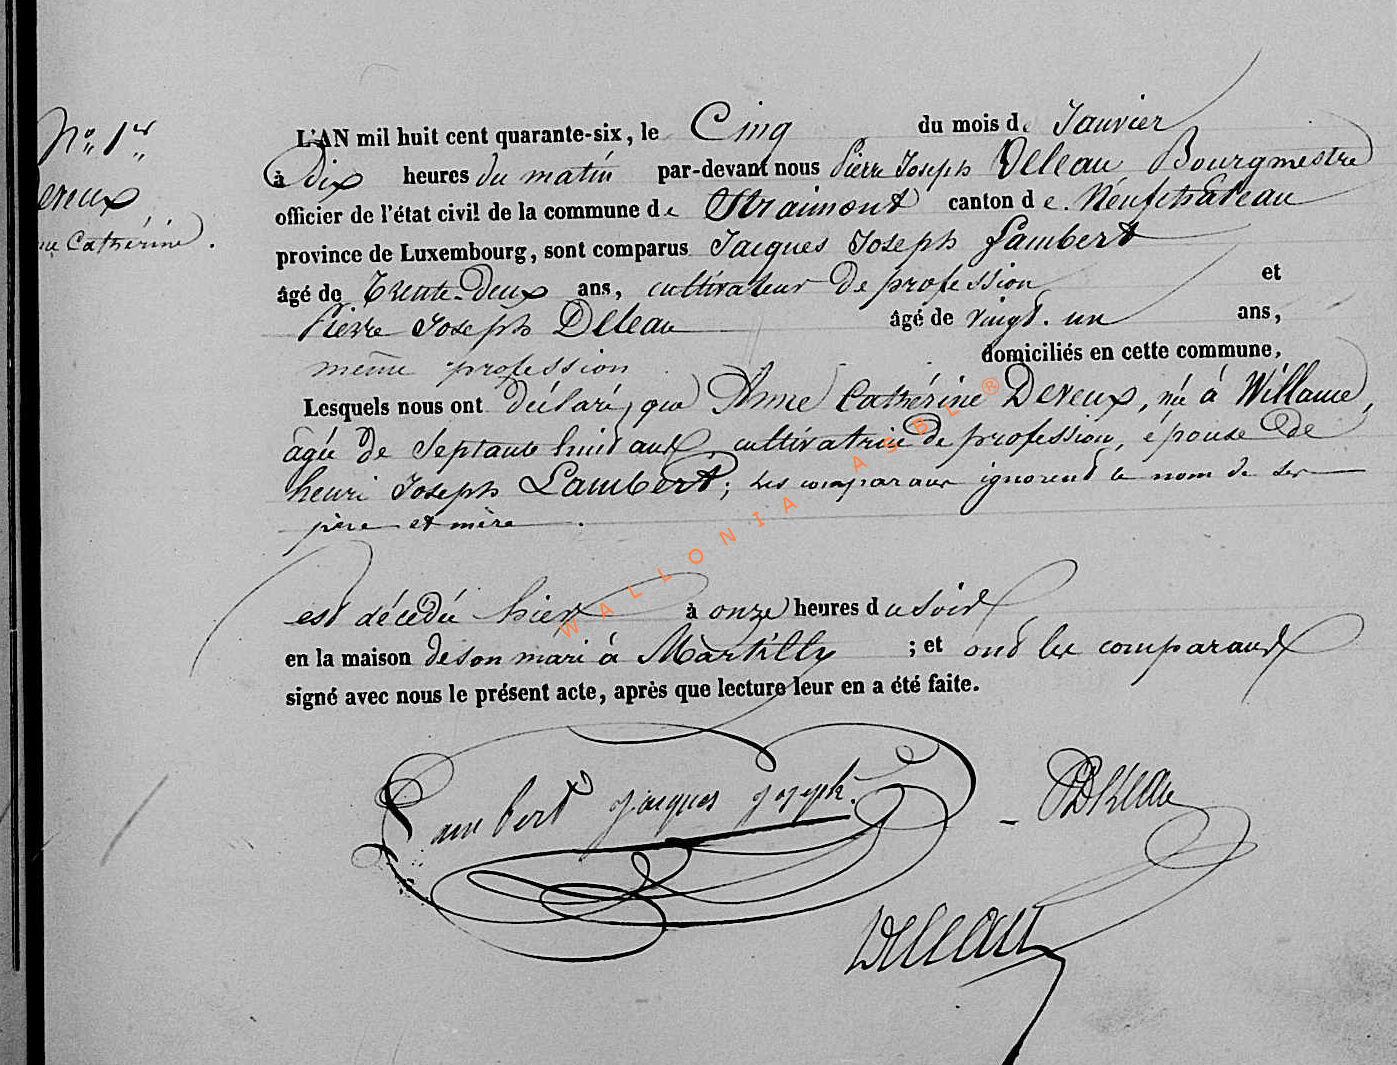 N° 1er
Dereux
Catherine.
L'AN mil huit cent quarante-six, le Cinq du mois de Janvier
à Dix heures du matin par-devant nous Pierre Joseph Deleau Bourgmestre
officier de l'état civil de la commune de Straimont canton de Neufchateau
province de Luxembourg, sont comparus Jacques Joseph Lambert
âgé de Trente-Deux ans, cultivateur de profession et
Pierre Joseph Deleau âgé de vingt-un ans,
même profession domiciliés en cette commune,
Lesquels nous ont déclaré, que Anne Cathérine Dereux, née à Willame,
agée de Septante huit ans, cultivatrice de profession, épouse de
henri Joseph Lambert; les comparaux ignorent le nom de ses
père et mère.
est décédée hier à onze heures du soir
en la maison de son mari à Martilly ; et ont les comparaux
signé avec nous le présent acte, après que lecture leur en a été faite.
Lambert Jacques Joseph.
PDeleau
Deleau
WALLONIA ASBL ®